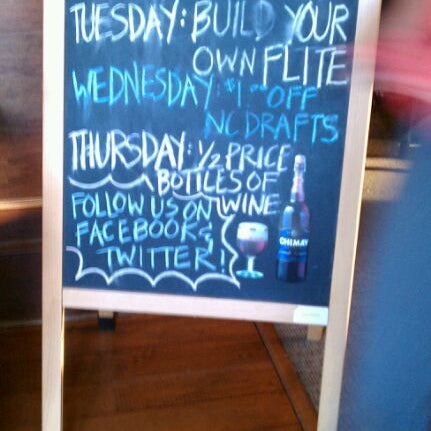 TUESDAY: BUILD YOUR
OWN FLITE
WEDNESDAY: $1.00 OFF
NC DRAFTS
THURSDAY: 1/2 PRICE
BOTTLES OF
WINE
FOLLOW US ON
FACEBOOK &
TWITTER!
CHIMAY